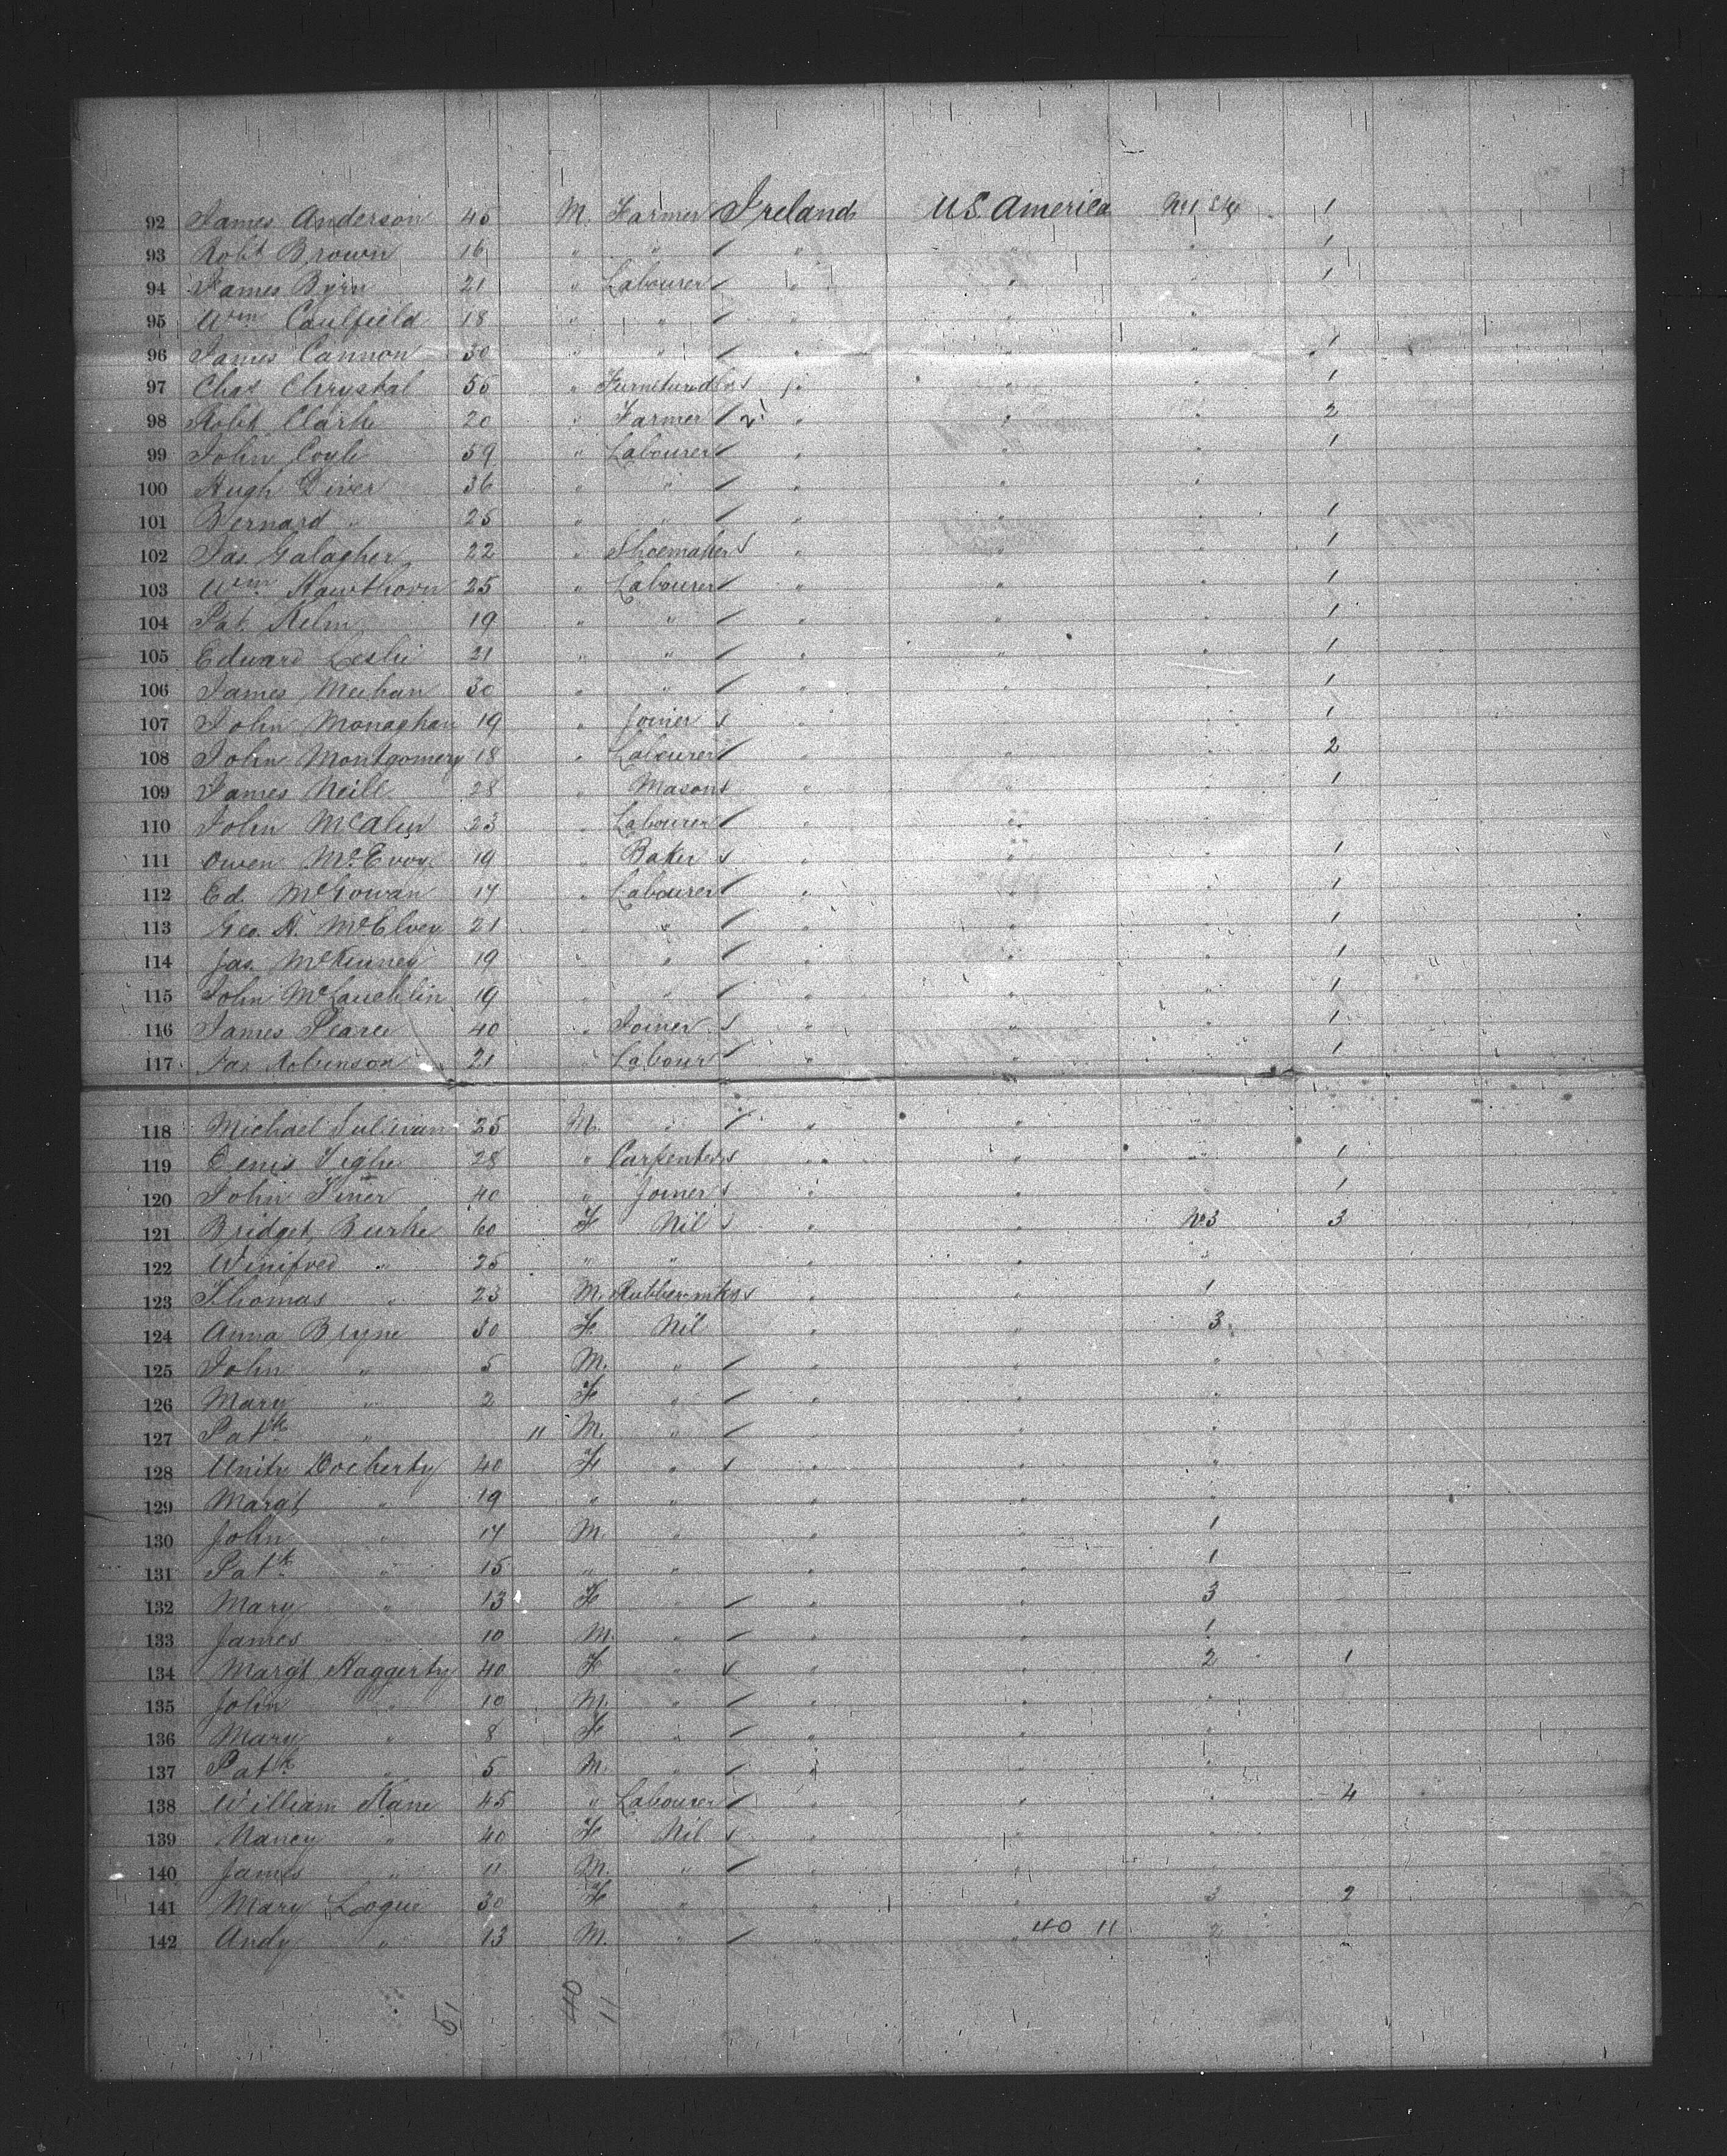 92 James Anderson 45 M. Farmer Ireland U.S. America No 1 1
93 Robt Brown 16 " " / " " " 1
94 James Byrn 21 " Labourer / " " " 1
95 Wm Caulfield 18 " " / " " "
96 James Cannon 30 " " / " " " 1
97 Chas Chrystal 50 " s " " " 1
98 Robt Clark 20 " Farmer / 2 " " " 2
99 John Coyle 59 " Labourer / " " " 1
100 Hugh Diver 36 " " / " " "
101 Bernard " 25 " " / " " " 1
102 Jas Galagher 22 " Shoemaker s " " " 1
103 Wm Hawthorn 25 " Labourer / " " " 1
104 Pat 19 " " / " " " 1
105 Edward Leslie 21 " " / " " " 1
106 James Meehan 30 " " / " " " 1
107 John Monaghan 19 " Joiner s " " " 1
108 John Montgomery 18 " Labourer / " " " 2
109 James Neill 28 " Mason s " " " 1
110 John 23 " Labourer / " " "
111 Owen McEvoy 19 " Baker s " " " 1
112 Ed. McGowan 17 " Labourer / " " " 1
113 Geo. A. McElvey 21 " " / " " " 1
114 Jas McKinney 19 " " / " " " 1
115 John McLauchlin 19 " " / " " " 1
116 James Pearce 40 " Joiner s " " " 1
117 Jas Robinson 21 " Labour / " " " 1
118 Michael Sulivan 25 M. " / " " "
119 Denis Tighe 28 " Carpenter s " " " 1
120 John 40 " Joiner s " " " 1
121 Bridget Burke 60 F Nil s " " No 3 3
122 Winifred " 25 " " " " "
123 Thomas " 23 M. s " " 1
124 Anna Bryne 30 F Nil " " 3
125 John " 5 M. " / " " "
126 Mary " 2 F " / " " "
127 Patk " 11 M. " / " " "
128 Unity Docherty 40 F " s " " "
129 Margt " 19 " " " " "
130 John " 17 M. " " " 1
131 Patk " 15 " " " " 1
132 Mary " 13 F " / " " 3
133 James " 10 M. " / " " 1
134 Margt Haggerty 40 F " s " " 2 1
135 John " 10 M. " / " " "
136 Mary " 8 F " / " " "
137 Patk " 5 M. " / " " "
138 William Kane 45 " Labourer / " " " 4
139 Nancy " 40 F Nil s " " "
140 James " 11 M. " / " " "
141 Mary Logue 30 F " " " 3 2
142 Andy " 13 M. " / " " 2
40 11
51 40 11